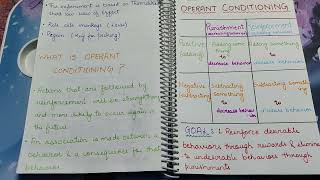 The experiment is based on Thorndike
law of effect
Rats
Pigeon
WHAT IS OPERANT
CONDITIONING ?
Actions that are followed by
reinforcement will be strengthened
and more likely to occur again in
the future
An association is made between a
behavior & a consequence for that
behavior
OPERANT CONDITIONING
Punishment
Reinforcement
Positive
(adding)
Adding something
to
decrease behavior
Adding something
to
increase behavior
Negative
(subtracting)
Subtracting
something
to
decrease behavior
Subtracting something
to
increase behavior
GOAL : Reinforce desirable
behaviors through rewards & eliminate
undesirable behaviors through
punishments